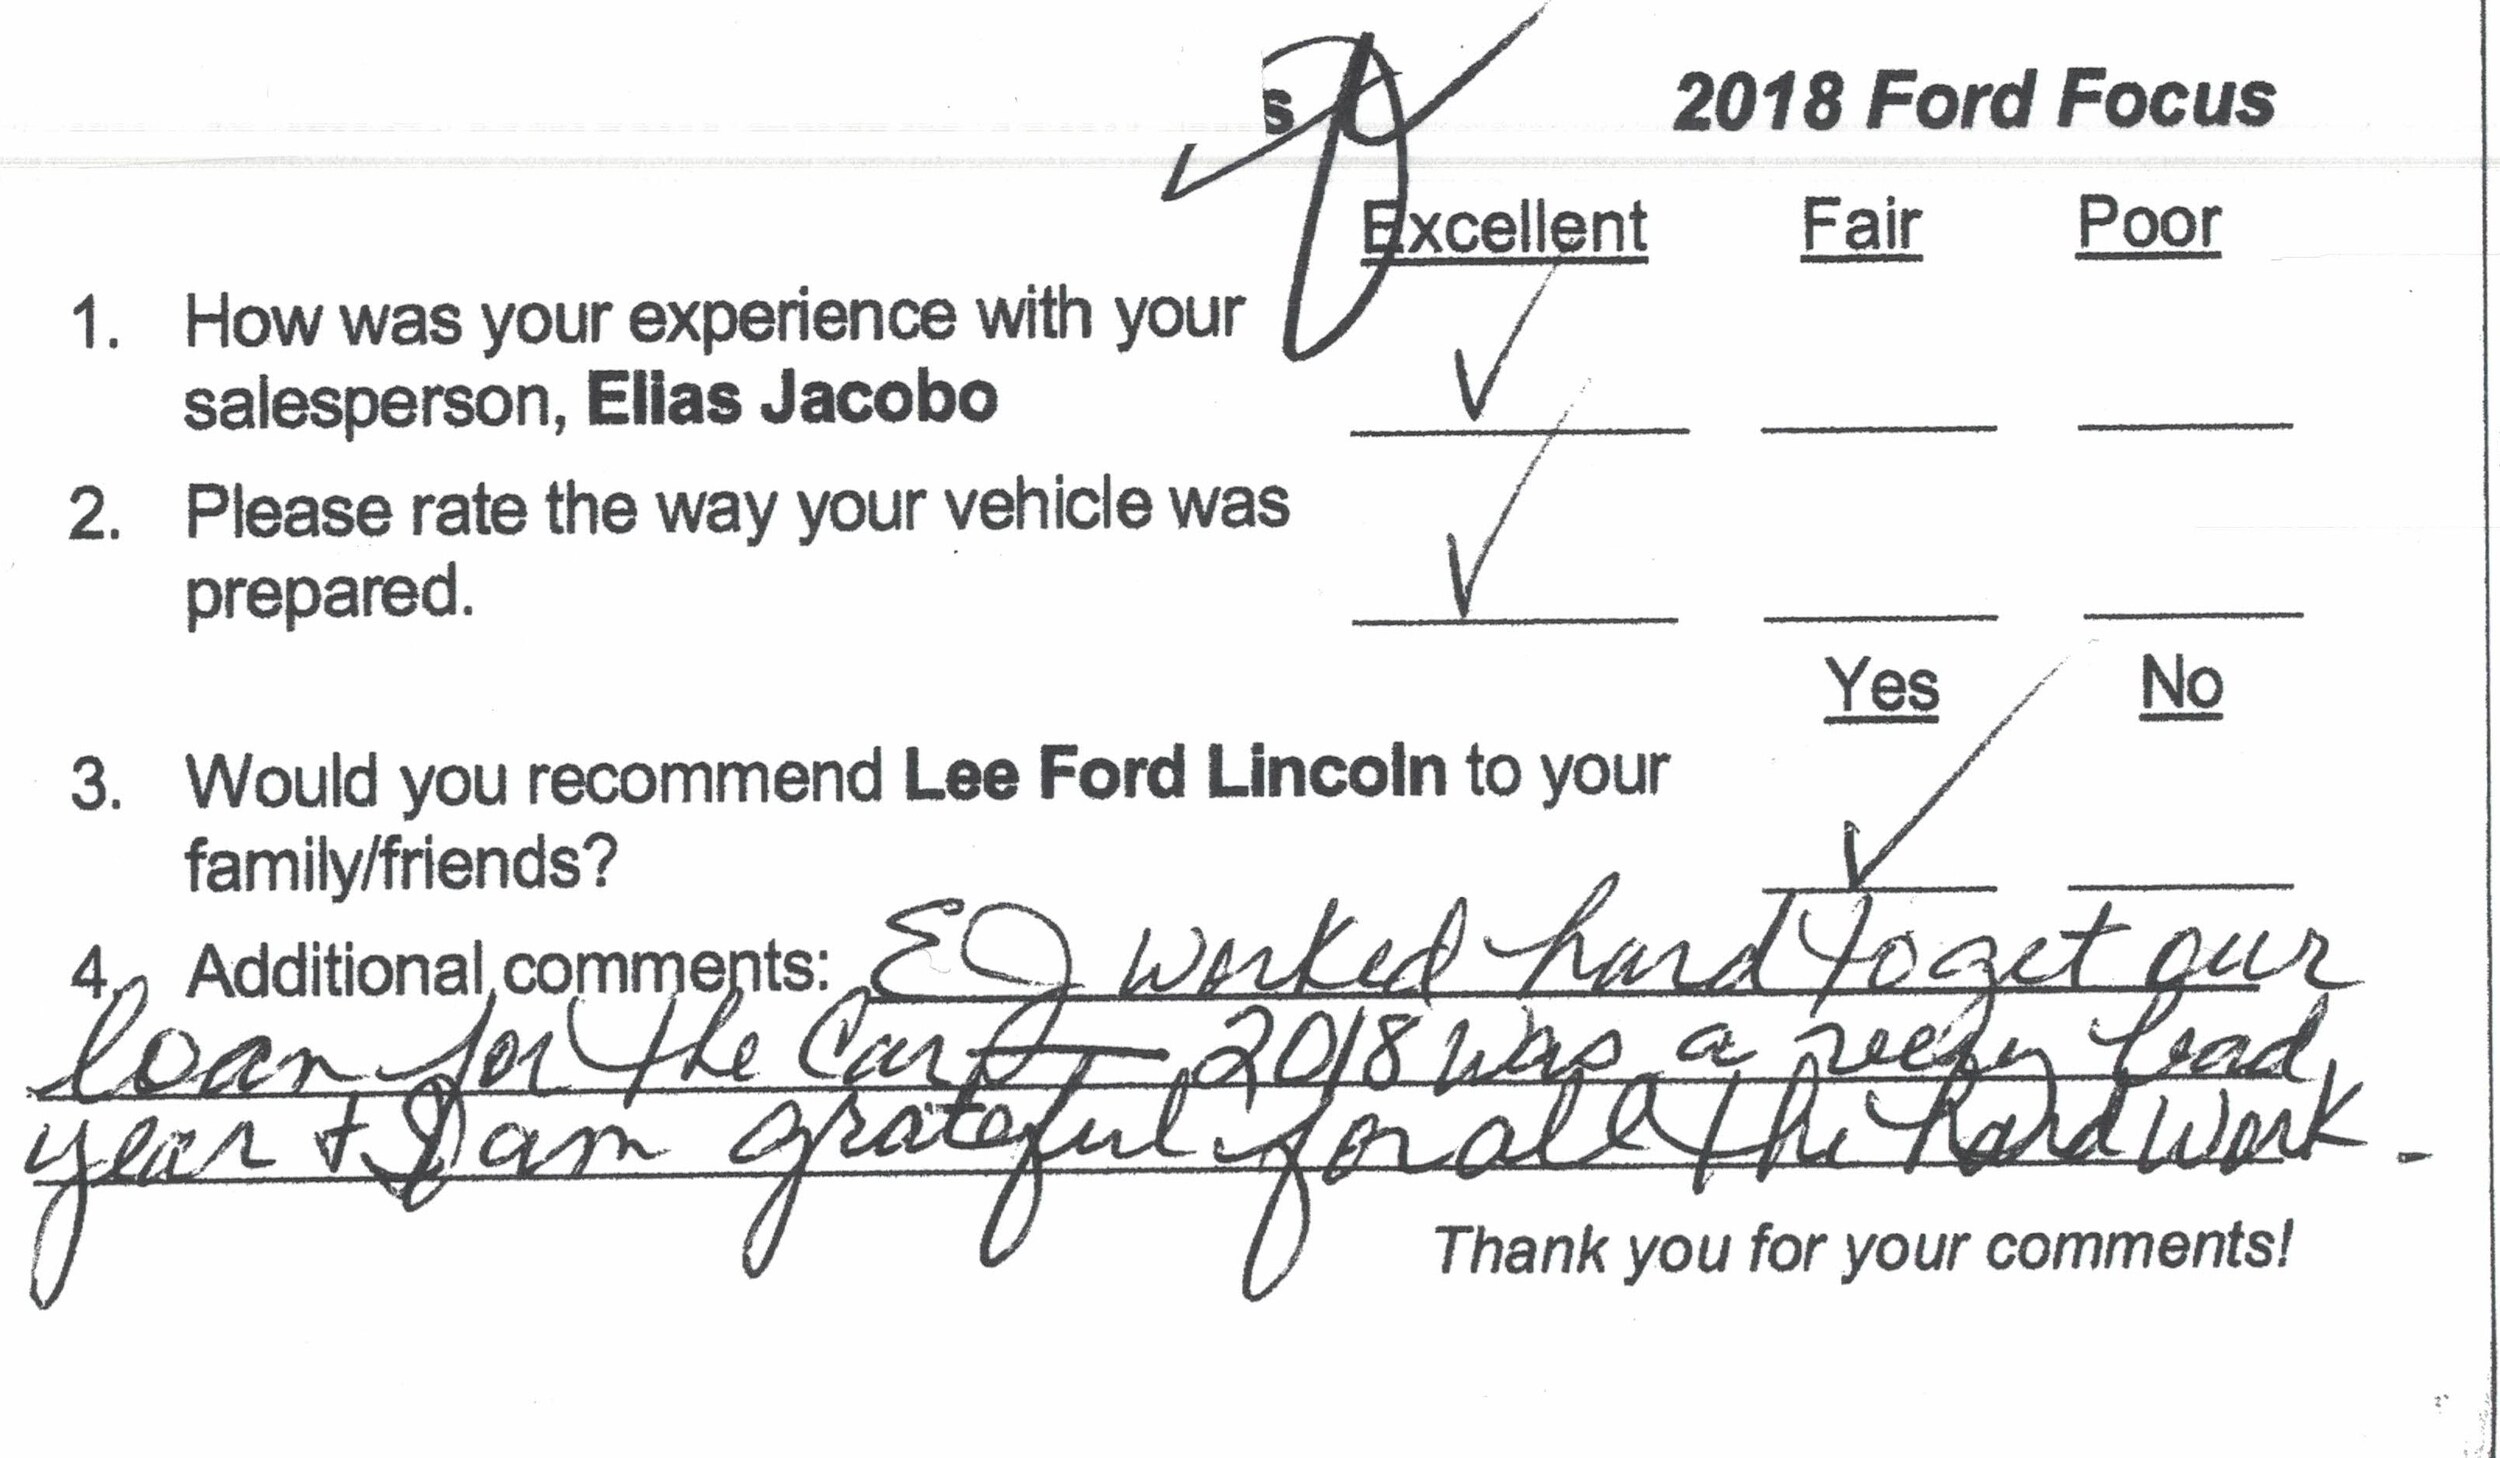 s 2018 Ford Focus
Excellent Fair Poor
1. How was your experience with your
salesperson, Elias Jacobo
2. Please rate the way your vehicle was
prepared.
Yes No
3. Would you recommend Lee Ford Lincoln to your
family/friends?
4. Additional comments: EJ worked hard to get our
loan for the Car — 2018 was a very bad
year + I am grateful for all the hard work.
Thank you for your comments!